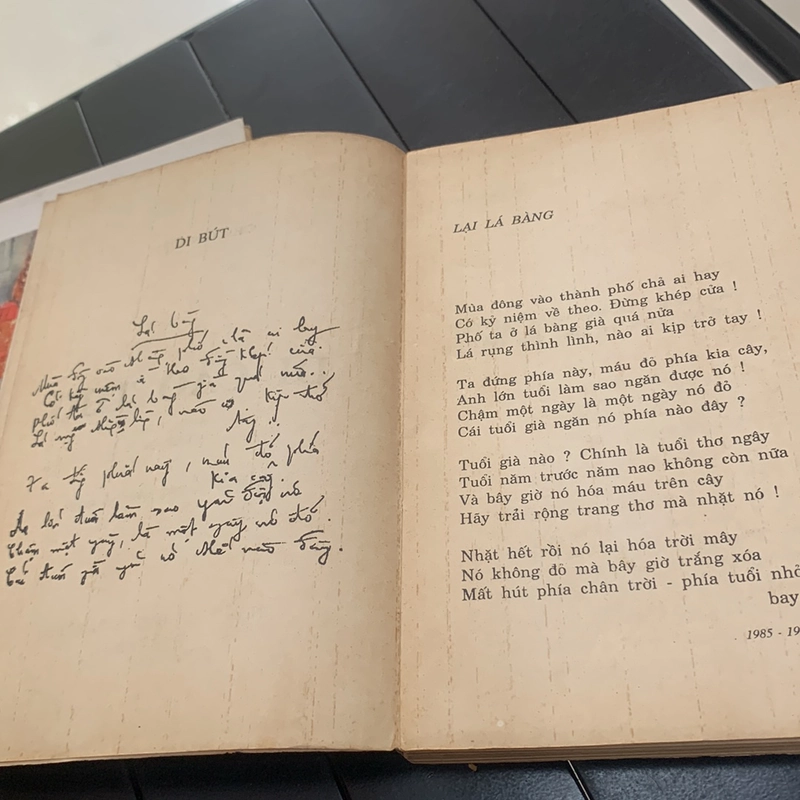 DI BÚT
Lại bàng
Mùa đông vào thành phố chả ai hay
Có kỷ niệm về theo đừng khép cửa
phố ta ở lá bàng già quá nửa...
Lá rụng thình lình, nào ai kịp trở
tay...
Ta đứng phía này, máu đỏ phía
kia cây.
Anh lớn tuổi làm sao
Chậm một ngày, là một ngày nó đỏ.
Cái tuổi già nó nào đây.
LẠI LÁ BÀNG
Mùa đông vào thành phố chả ai hay
Cớ kỷ niệm về theo. Đừng khép cửa !
Phố ta ở lá bàng già quá nửa
Lá rụng thình lình, nào ai kịp trở tay !
Ta đứng phía này, máu đỏ phía kia cây,
Anh lớn tuổi làm sao ngăn được nó !
Chậm một ngày là một ngày nó đỏ
Cái tuổi già ngăn nó phía nào đây ?
Tuổi già nào ? Chính là tuổi thơ ngây
Tuổi năm trước năm nao không còn nữa
Và bây giờ nó hóa máu trên cây
Hãy trải rộng trang thơ mà nhặt nó !
Nhặt hết rồi nó lại hóa trời mây
Nó không đỏ mà bây giờ trắng xóa
Mất hút phía chân trời - phía tuổi nhỏ
bay
1985 - 19